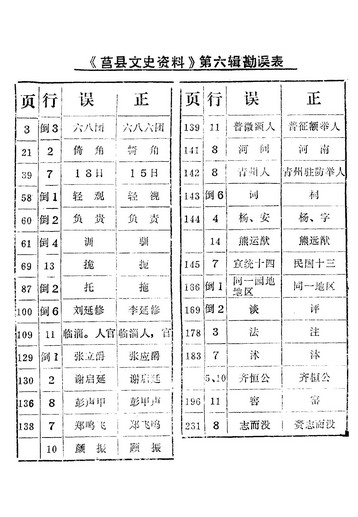 《莒县文史资料》第六辑勘误表
页 行 误 正
3 倒3 六八团 六八六团
21 2 倚角 犄角
39 7 18日 15日
58 倒1 轻观 轻视
60 倒2 负贵 负责
61 倒4 训 驯
69 13 拖
87 倒2 托 拖
100 倒6 刘延修 李延修
109 11 临满。人官 临满人,官
129 倒1 张立爵 张应爵
130 2 谢启延 谢启廷
136 8 彭声甲 彭甲声
138 7 郑鸣飞 郑飞鸣
10 颜振 顾振
页 行 误 正
139 11 普征额举人
141 8 河间 河南
142 8 青州人 青州驻防举人
143 倒6 词 祠
144 4 杨、安 杨、字
14 熊运猷 熊远猷
145 7 宣统十四 民国十三
166 倒1 同一园地地区 同一地区
169 倒2 谈 评
178 3 法 注
183 7 沭
5、10 齐恒公 齐桓公
196 11 审
231 8 志而没 赍志而没